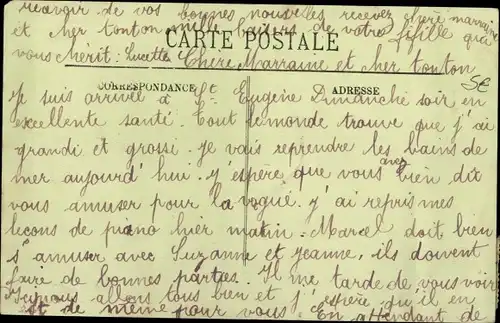 recevoir de vos bonnes nouvelles recevez chère marraine
et cher tonton mille baisers de votre fifille qui
CARTE POSTALE
vous chérit : Lucette Chère Marraine et cher tonton
CORRESPONDANCE
ADRESSE
5€
Je suis arrivée à St Eugène Dimanche soir en
excellente santé. Tout le monde trouve que j'ai
grandi et grossi. Je vais reprendre les bains de
mer aujourd'hui. J'espère que vous avez bien dit
vous amuser pour la vogue. J'ai repris mes
leçons de piano hier matin. Marcel doit bien
s'amuser avec Suzanne et Jeanne, ils doivent
faire de bonnes parties. Il me tarde de vous voir
Ici nous allons tous bien et j'espère qu'il en
est de même pour vous. En attendant de